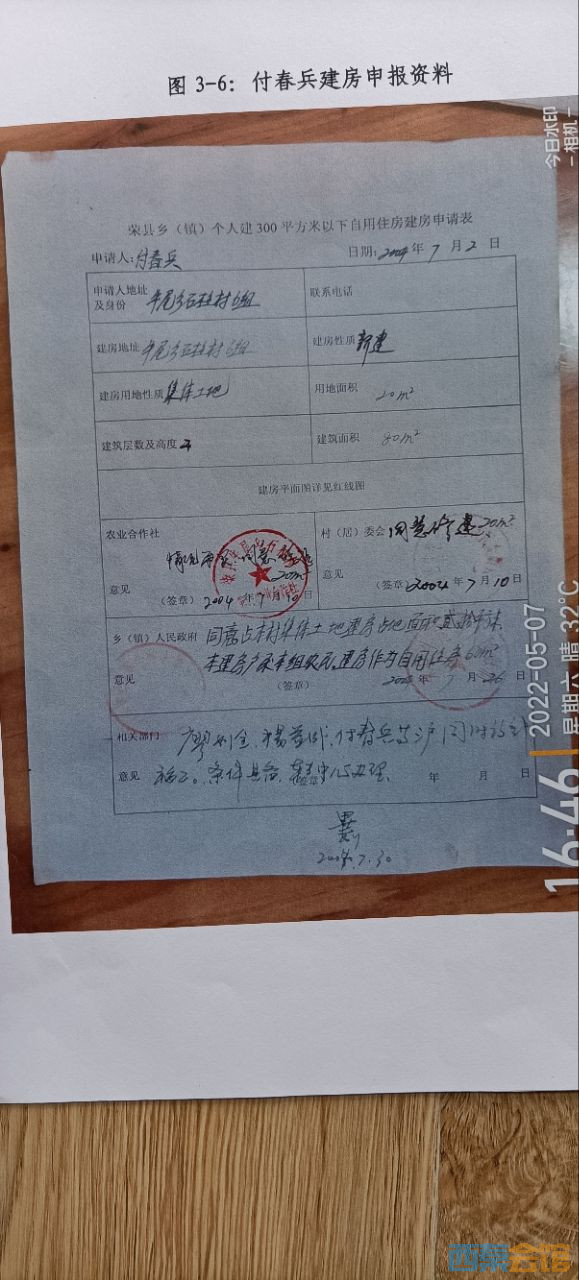 图 3-6：付春兵建房申报资料
今日水印
-相机-
荣县乡（镇）个人建300平方米以下自用住房建房申请表
申请人:付春兵 日期:2004年7月2日
申请人地址及身份 牟尾乡石柱村6组 联系电话
建房地址 牟尾乡石柱村6组 建房性质 新建
建房用地性质 集体土地 用地面积 20m²
建筑层数及高度 建筑面积 80m²
建房平面图详见红线图
农业合作社 村（居）委会 同意修建20m²
情况属实 同意 20m²
意见 意见
（签章）2004年7月10日 （签章）2004年7月10日
乡（镇）人民政府 同意占本村集体土地建房占地面积贰拾平米
本建房户系本组农民,建房作为自用住房60m²
意见 （签章） 7月26日
相关部门
意见 条件具备 办理 年 月 日
2004.7.30
2022-05-07
星期六 晴 32°C
16:46
西秦会馆